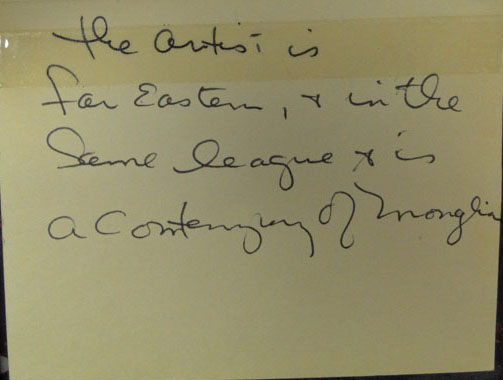 the artist is
far Eastern, & in the
Same league & is
a Contempury of